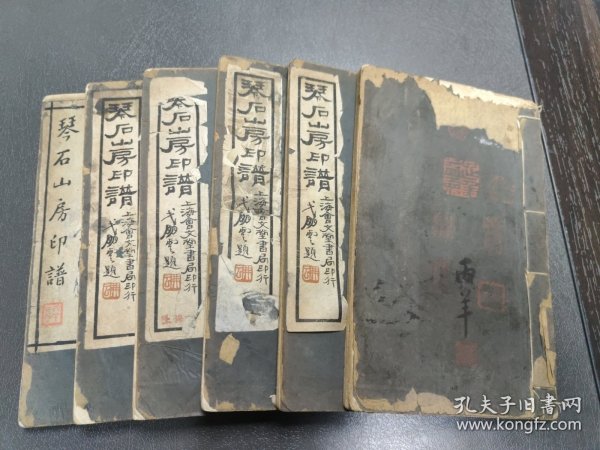 琴石山房印譜
琴石山房印譜
上海會文堂書局印行
琴石山房印譜
上海會文堂書局印行
琴石山房印譜
上海會文堂書局印行
琴石山房印譜
上海會文堂書局印行
孔夫子旧书网
www.kongfz.com